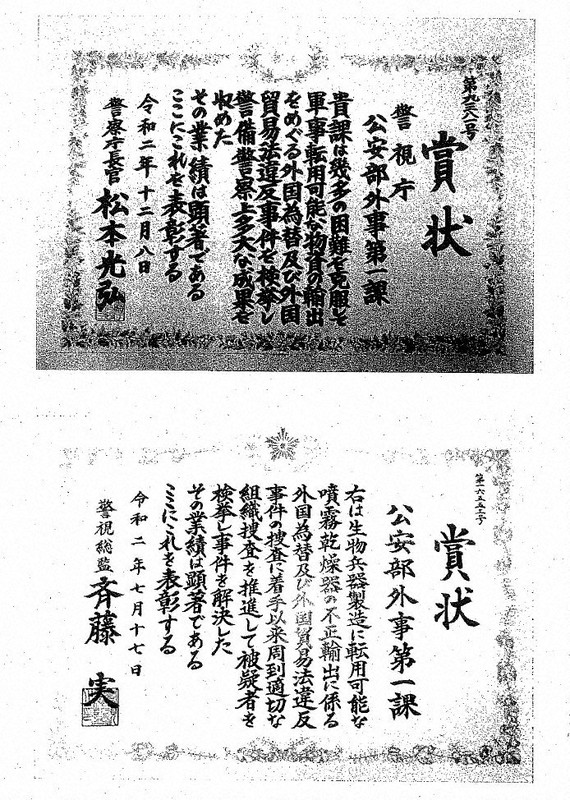 賞状
警視庁
公安部外事第一課
貴課は幾多の困難を克服し
軍事転用可能な物資の輸出
をめぐる外国為替及び外国
貿易法違反事件を検挙し
警備警察上多大な成果を
収めた
その業績は顕著である
ここにこれを表彰する
令和二年十二月八日
警察庁長官 松本光弘
賞状
公安部外事第一課
右は生物兵器製造に転用可能な
噴霧乾燥器の不正輸出に係る
外国為替及び外国貿易法違反
事件の捜査に着手以来周到適切な
組織捜査を推進して被疑者を
検挙し事件を解決した
その業績は顕著である
ここにこれを表彰する
令和二年七月十七日
警視総監 斉藤実